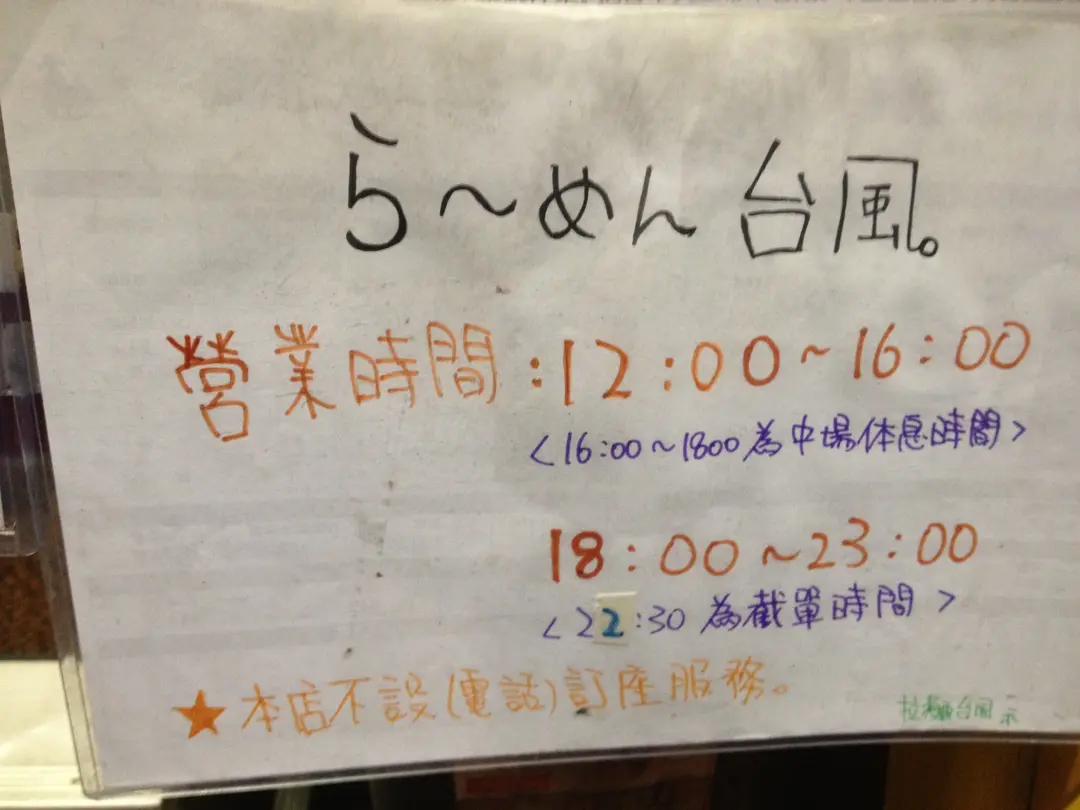 ら～めん 台風。
営業時間:12:00~16:00
<16:00~1800為中場休息時間>
18:00~23:00
<22:30 為截單時間>
★本店不設(電話)訂座服務。